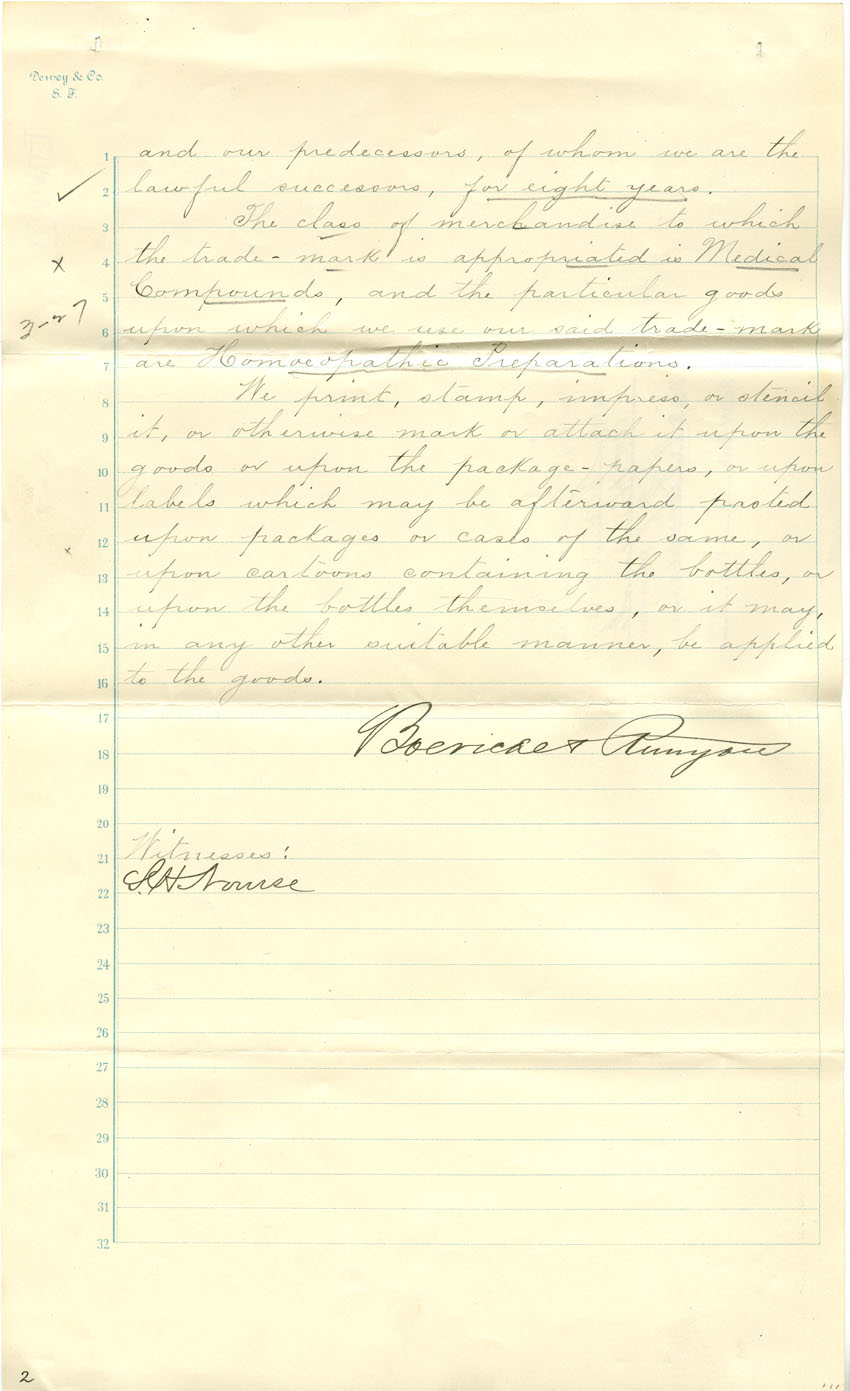 Dewey & Co.
S. F.
1 and our predecessors, of whom we are the
2 lawful successors, for eight years.
3 The class of merchandise to which
4 the trade-mark is appropriated is Medical
5 Compounds, and the particular goods
6 upon which we use our said trade-mark
7 are Homoeopathic Preparations.
8 We print, stamp, impress, or stencil
9 it, or otherwise mark or attach it upon the
10 goods or upon the package-papers, or upon
11 labels which may be afterward pasted
12 upon packages or cases of the same, or
13 upon cartoons containing the bottles, or
14 upon the bottles themselves, or it may,
15 in any other suitable manner, be applied
16 to the goods.
17
18 Boericke & Runyon
19
20
21 Witnesses:
22 S. H. Nourse
23
24
25
26
27
28
29
30
31
32
2